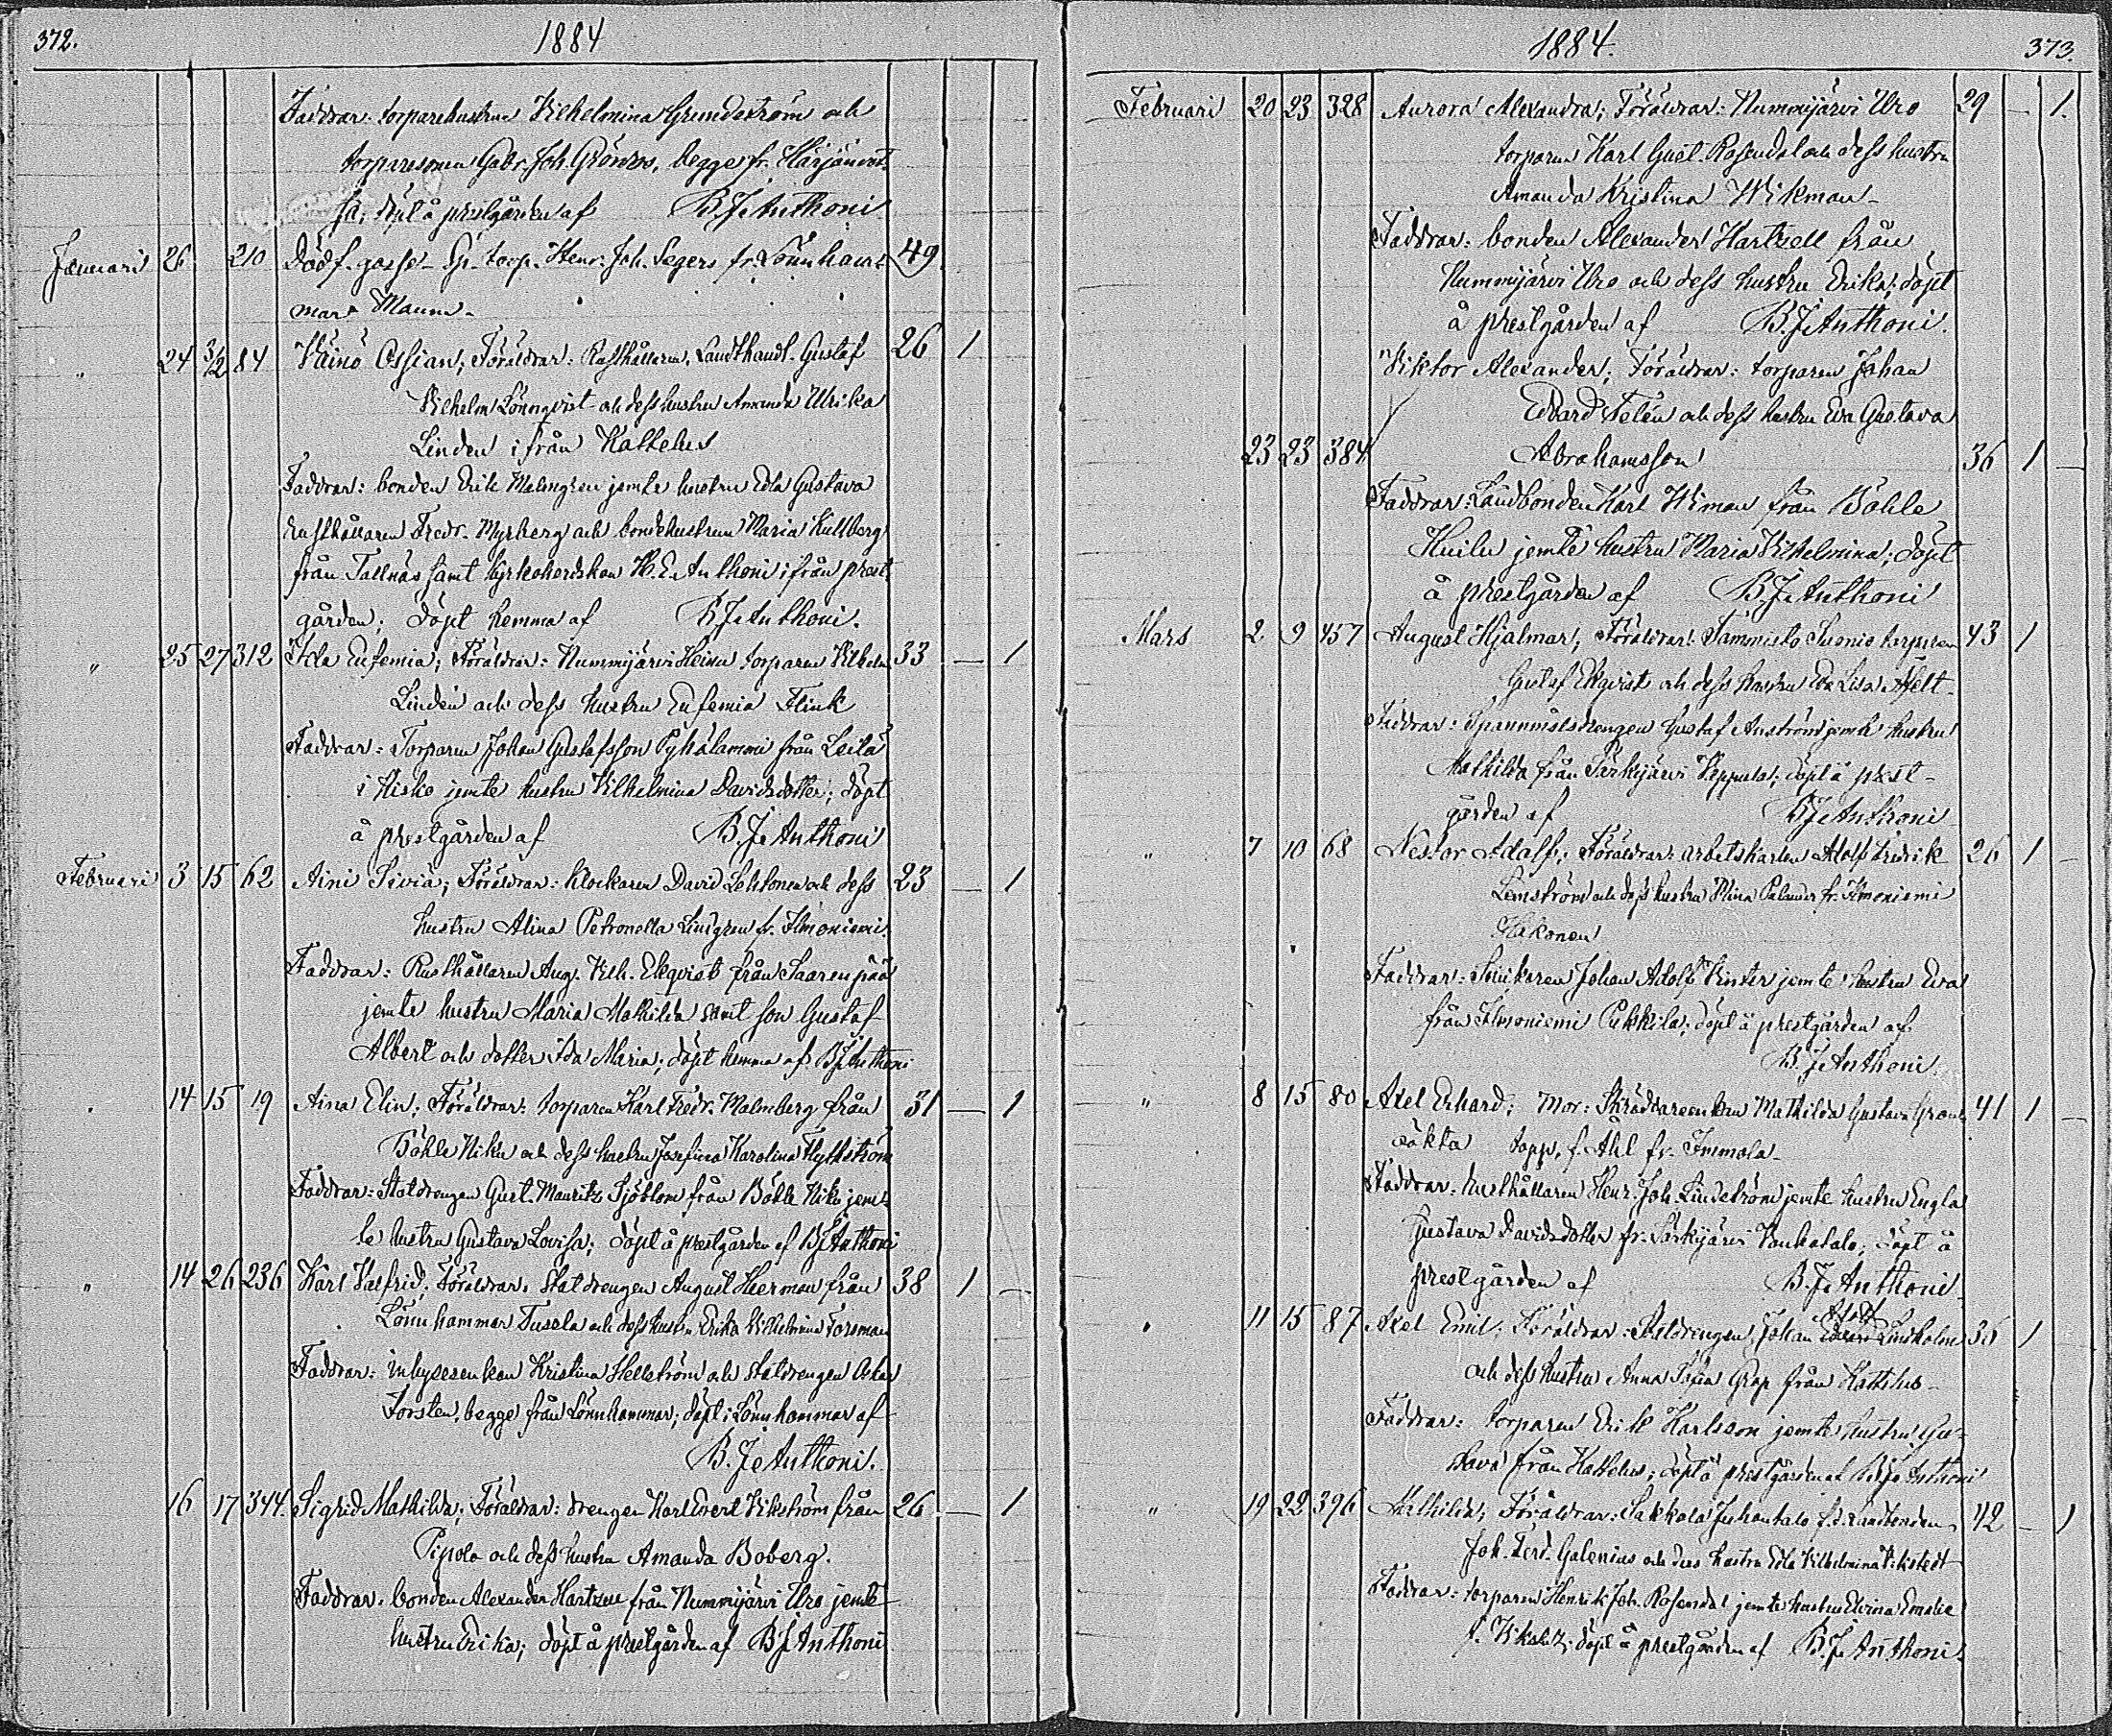 372.
1884
Faddrar: torparehustrun Vilhelmina Grundström och
torparesonen Gabr. Joh. Grönroos, begge fr.
döpt å prestgården af B. J. Anthoni
Januari 26 210 Dödf. gosse Henr. Joh. Segers fr. Lönnham- 49
mar Maunu
" 24 3/2 84 Väinö Ossian; Föräldrar: Rusthållaren, Landthandl. Gustaf 26 1
Vilhelm Lönnqvist och dess hustru Amanda Ulrika
Linden ifrån Kattelus
Faddrar: bonden Erik Malmgren jemte hustru Edla Gustava
rusthållaren Fredr. Myrberg och bondehustrun Maria Kullberg
från Tallnäs samt kyrkoherdskan E. Anthoni ifrån prest-
gården; döpt hemma af B. J. Anthoni.
" 25 27 312 Ida Eufemia; Föräldrar: Nummijärvi Heinu torparen Vilhelm 33 — 1
Linden och dess hustru Eufemia Flink
Faddrar: Torparen Johan Gustafsson Pyhälammi från Leilä
i Hiske jemte hustru Vilhelmina Davidsdotter; döpt
å prestgården af B. J. Anthoni
Februari 3 15 62 Aini Sivia; Föräldrar: Klockaren David Lehtonen och dess 23 — 1
hustru Alina Petronella Lindgren fr. Ilmoniemi.
Faddrar: Rusthållaren Aug. Vilh. Ekqvist från Saarenpää
jemte hustru Maria Mathilda samt son Gustaf
Albert och dotter Ida Maria; döpt hemma af B. J. Anthoni
" 14 15 19 Aina Elin; Föräldrar: torparen Karl Fredr. Malmberg från 31 — 1
Böhle Niku och dess hustru Josefina Karolina Flythström
Faddrar: Statdrengen Gust. Mauritz Sjöblom från Böhle Niku jem-
te hustru Gustava Lovisa; döpt å prestgården af B. J. Anthoni
" 14 26 236 Karl Valfrid; Föräldrar: Statdrengen August Herman från 38 1 —
Lönnhammar Tusela och dess hustru Erika Vilhelmina Forsman
Faddrar: inhysesenkan Kristina Hellström och statdrengen Oskar
Forsten, begge från Lönnhammar; döpt i Lönnhammar af
B. J. Anthoni.
16 17 344. Sigrid Mathilda; Föräldrar: drengen Karl Evert Vikström från 26 — 1
Pipola och dess hustru Amanda Boberg.
Faddrar: bonden Alexander Hartzell från Nummijärvi Uro jemte
hustru Erika; döpt å prestgården af B. J. Anthoni
1884.
373.
Februari 20 23 328 Aurora Alexandra; Föräldrar: Nummijärvi Uro 29 — 1.
torparen Karl Gust. Rosendal och dess hustru
Amanda Kristina Wikman
Faddrar: bonden Alexander Hartzell från
Nummijärvi Uro och dess hustru Erika; döpt
å prestgården af B. J. Anthoni.
Viktor Alexander; Föräldrar: torparen Johan
Edvard Felén och dess hustru Eva Gustava
23 23 384 Abrahamsson 36 1 —
Faddrar: Landbonden Karl Wiman från Böhle
Huilu jemte hustru Maria Vilhelmina; döpt
å prestgården af B. J. Anthoni
Mars 2 9 457 August Hjalmar; Föräldrar: Sammisto Suonio torparen 43 1
Gustaf Ekqvist och dess hustru Eva Lisa Afelt
Faddrar: Spannmålsdrengen Gustaf Anström jemte hustru
Mathilda från Särkijärvi Seppälä; döpt å prest-
gården af B. J. Anthoni
" 7 10 68 Nestor Adolf; Föräldrar: arbetskarlen Adolf Fredrik 26 1 —
Lemström och dess hustru Mina Palander fr. Ilmoniemi
Hakonen
Faddrar: Snickaren Johan Adolf Vinter jemte hustru Eva
från Ilmoniemi Pukkila; döpt å prestgården af
B. J. Anthoni.
" 8 15 80 Axel Erhard; Mor: Skräddareenkan Mathilda Gustava Gran- 41 1 —
oäkta f. Åhl fr. Immola
Faddrar: Rusthållaren Henr. Joh. Lindström jemte hustru Engla
Gustava Davidsdotter fr. Särkijärvi Vanhatalo; döpt å
prestgården af B. J. Anthoni
" 11 15 87 Axel Emil; Föräldrar: Statdrengen Johan Adolf Lindholm 36 1
och dess hustru Anna Sofia Grop från Kattelus
Faddrar: torparen Erik Karlsson jemte hustru Gu-
stava från Kattelus; döpt å prestgården af B. J. Anthoni
" 19 22 396 Mathilda; Föräldrar: Sakkola Juhantalo f.d. landbonden 42 — 1
Joh. Ferd. Galenius och dess hustru Edla Vilhelmina Vikstedt
Faddrar: torparen Henrik Joh. Rosendal jemte hustru Elvina Emelie
f. döpt å prestgården af B. J. Anthoni.